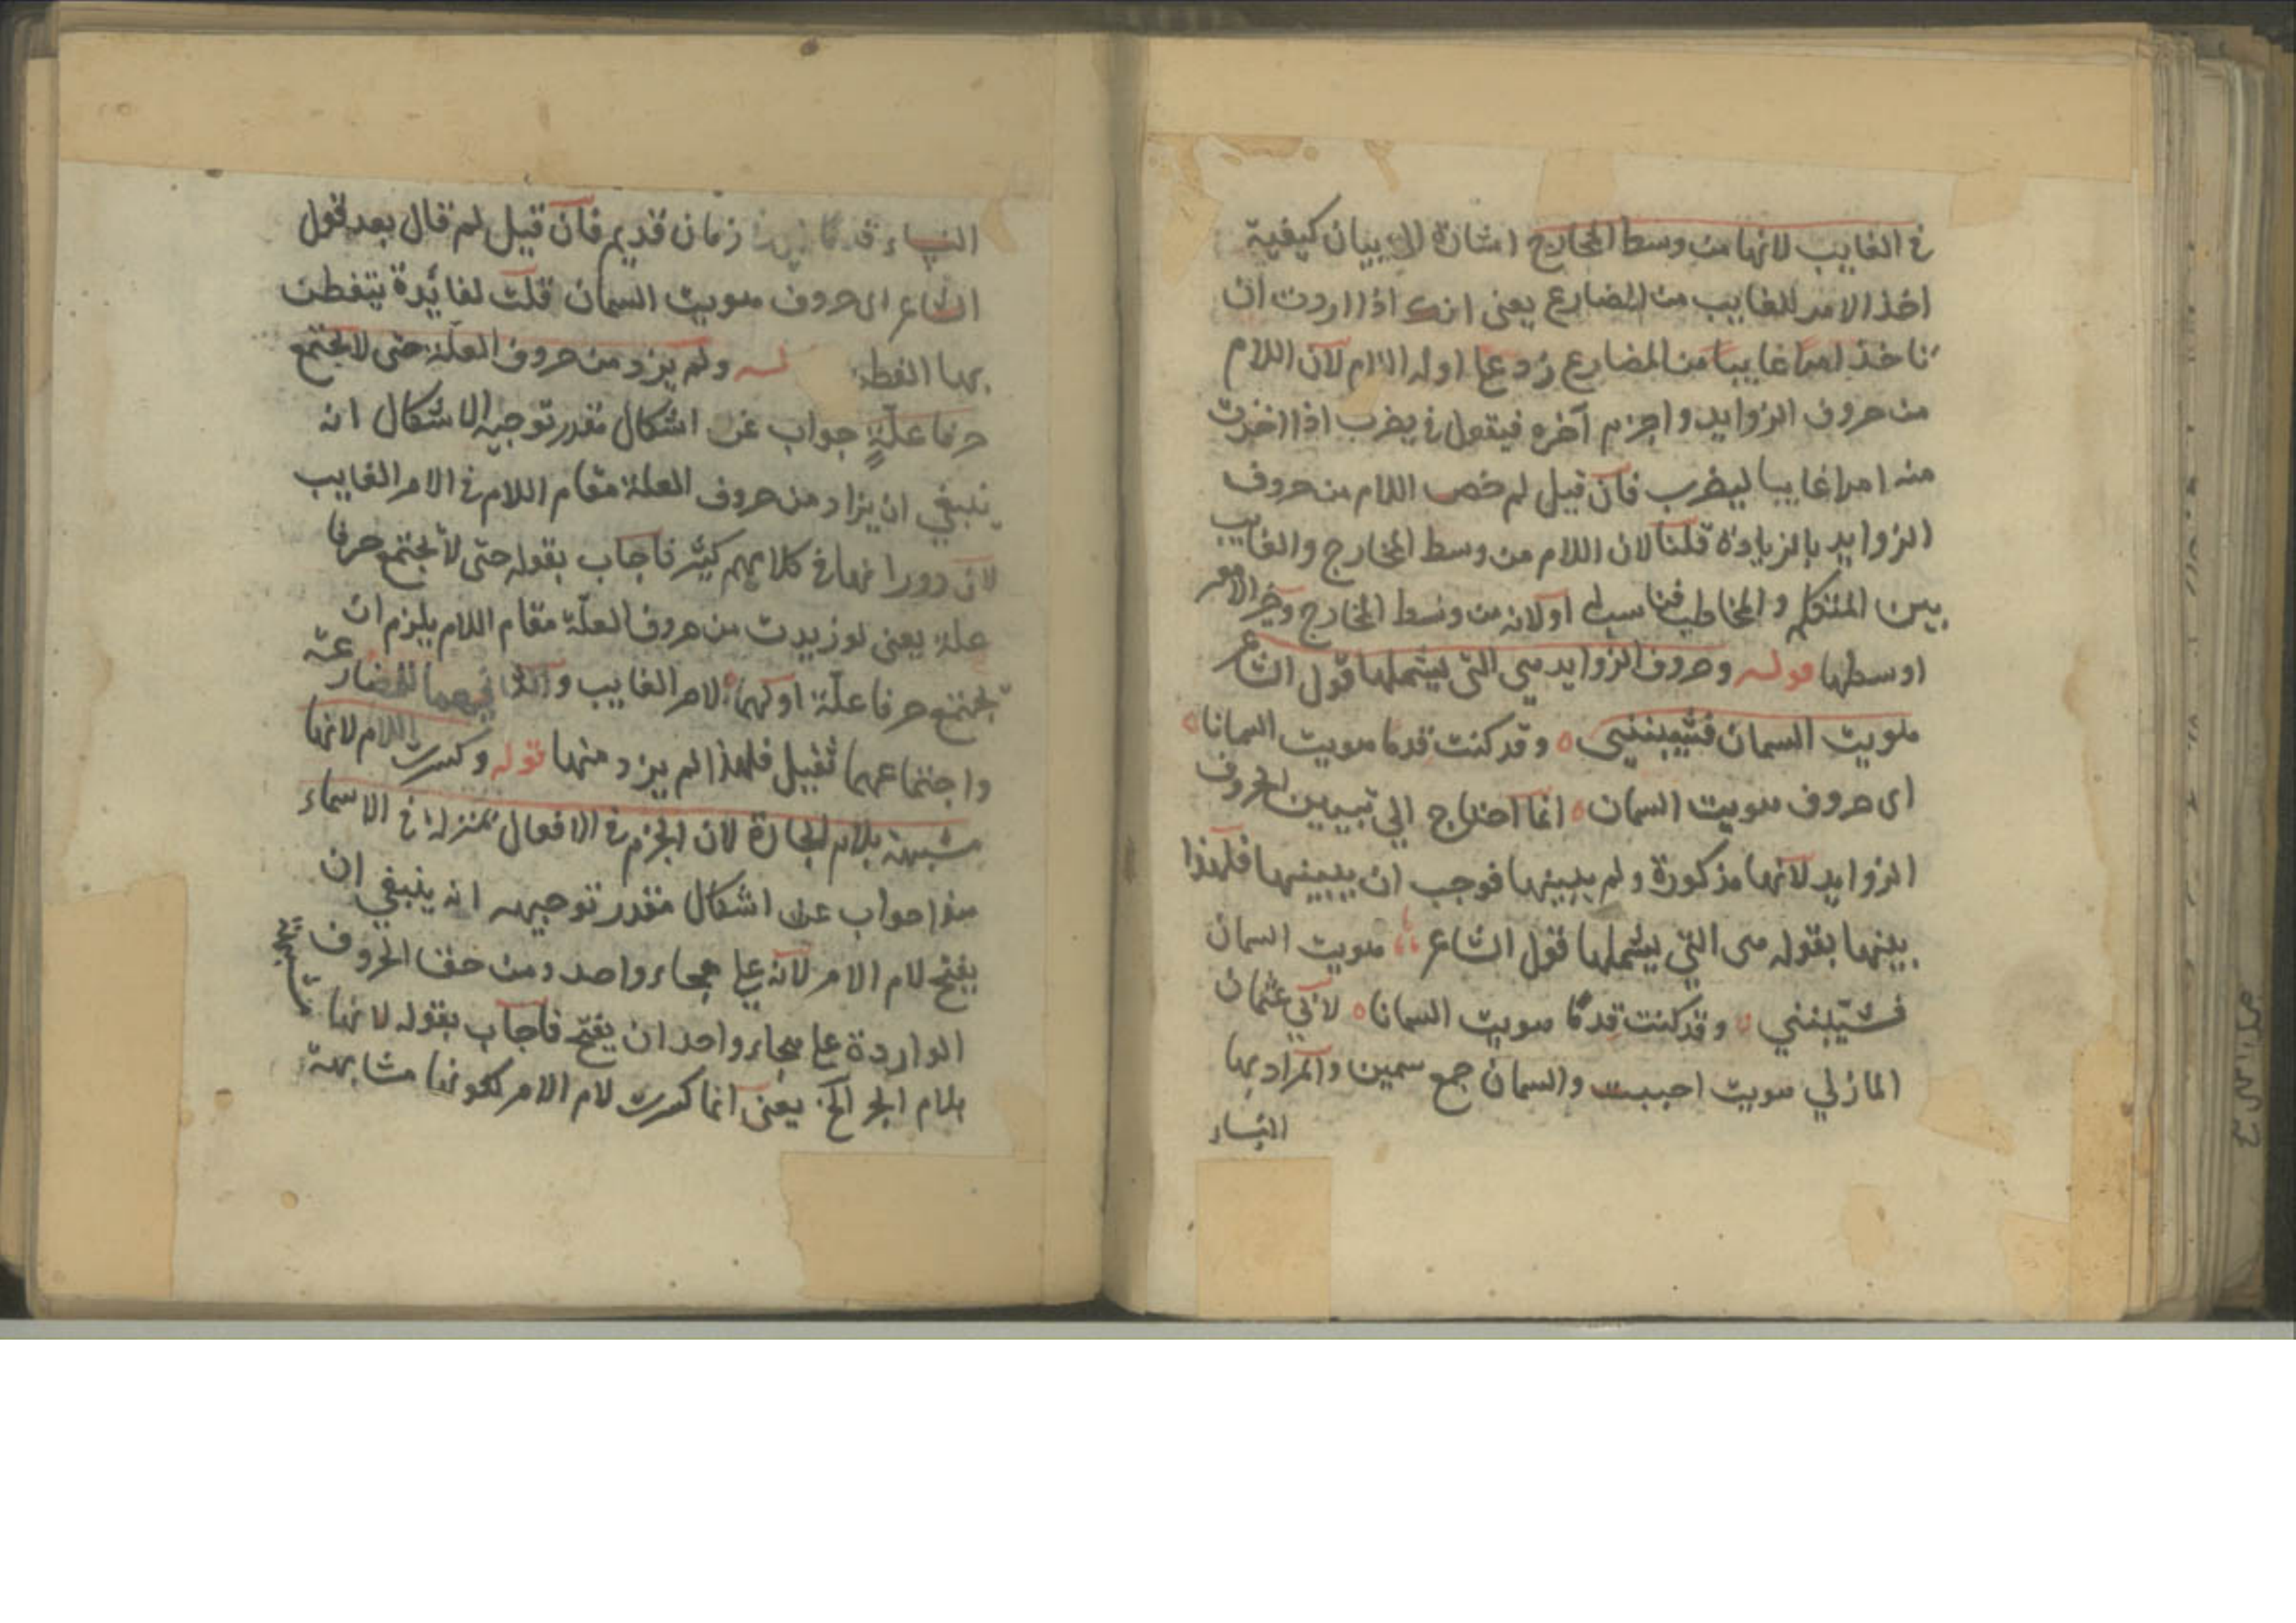 في الغايب لانها من وسط المخارج اشارة الى بيان كيفية
اخذ الامر للغايب من المضارع يعني انك اذا اردت ان
تاخذ امرا غايبا من المضارع زد على اوله اللام لان اللام
من حروف الزوايد واجزم آخره فيقول في يضرب اذا اخذت
منه امرا غايبا ليضرب فان قيل لم خص اللام من حروف
الزوايد بالزيادة قلنا لان اللام من وسط المخارج والغايب
بين المتكلم والمخاطب فناسبا او لانه من وسط المخارج وخير الامور
اوسطها قوله وحروف الزوايد هي التى يشملها قول الشاعر
هويت السمان فشيبننى ٥ وقد كنت قدما هويت السمانا ٥
اى حروف هويت السمان ٥ انما احتاج الى تبيين الحروف
الزوايد لانها مذكورة ولم يبينها فوجب ان يبينها فلهذا
بينها بقوله هى التي يشملها قول الشاعر هويت السمان
فشيّبنني ٥ وقد كنت قدمًا هويت السمانا ٥ لابي عثمان
المازلي هويت احببت والسمان جمع سمين والمراد بها
النساء
النساء قدما زمان قديم فان قيل لم قال بعد قول
الشاعر اى حروف هويت السمان قلت لفائدة يتفطن
بها الفطن له ولم يزد من حروف العلة حتى لا يجتمع
حرفا علّةٍ جواب عن اشكال مقدر توجيه الاشكال انه
ينبغي ان يزاد من حروف العلة مقام اللام في الامر الغايب
لان دورانها في كلامهم كثير فاجاب بقوله حتى لا يجتمع حرفا
علة يعنى لو زيدت من حروف العلّة مقام اللام يلزم ان
يجتمع حرفا علّة اولهما لامر الغايب و فيهما للمضارعة
واجتماعهما ثقيل فلهذا لم يزد منها قوله وكسرت اللام لانها
مشبهة بلام الجارة لان الجزم في الافعال بمنزلة في الاسماء
هذا جواب عن اشكال مقدر توجيهه انه ينبغي ان
يفتح لام الامر لانه على هجاء واحد ومن حق الحروف
الواردة على هجاء واحد ان يفتح فاجاب بقوله لانها مشبهة
بلام الجر الخ يعنى انما كسرت لام الامر لكونها مشابهة